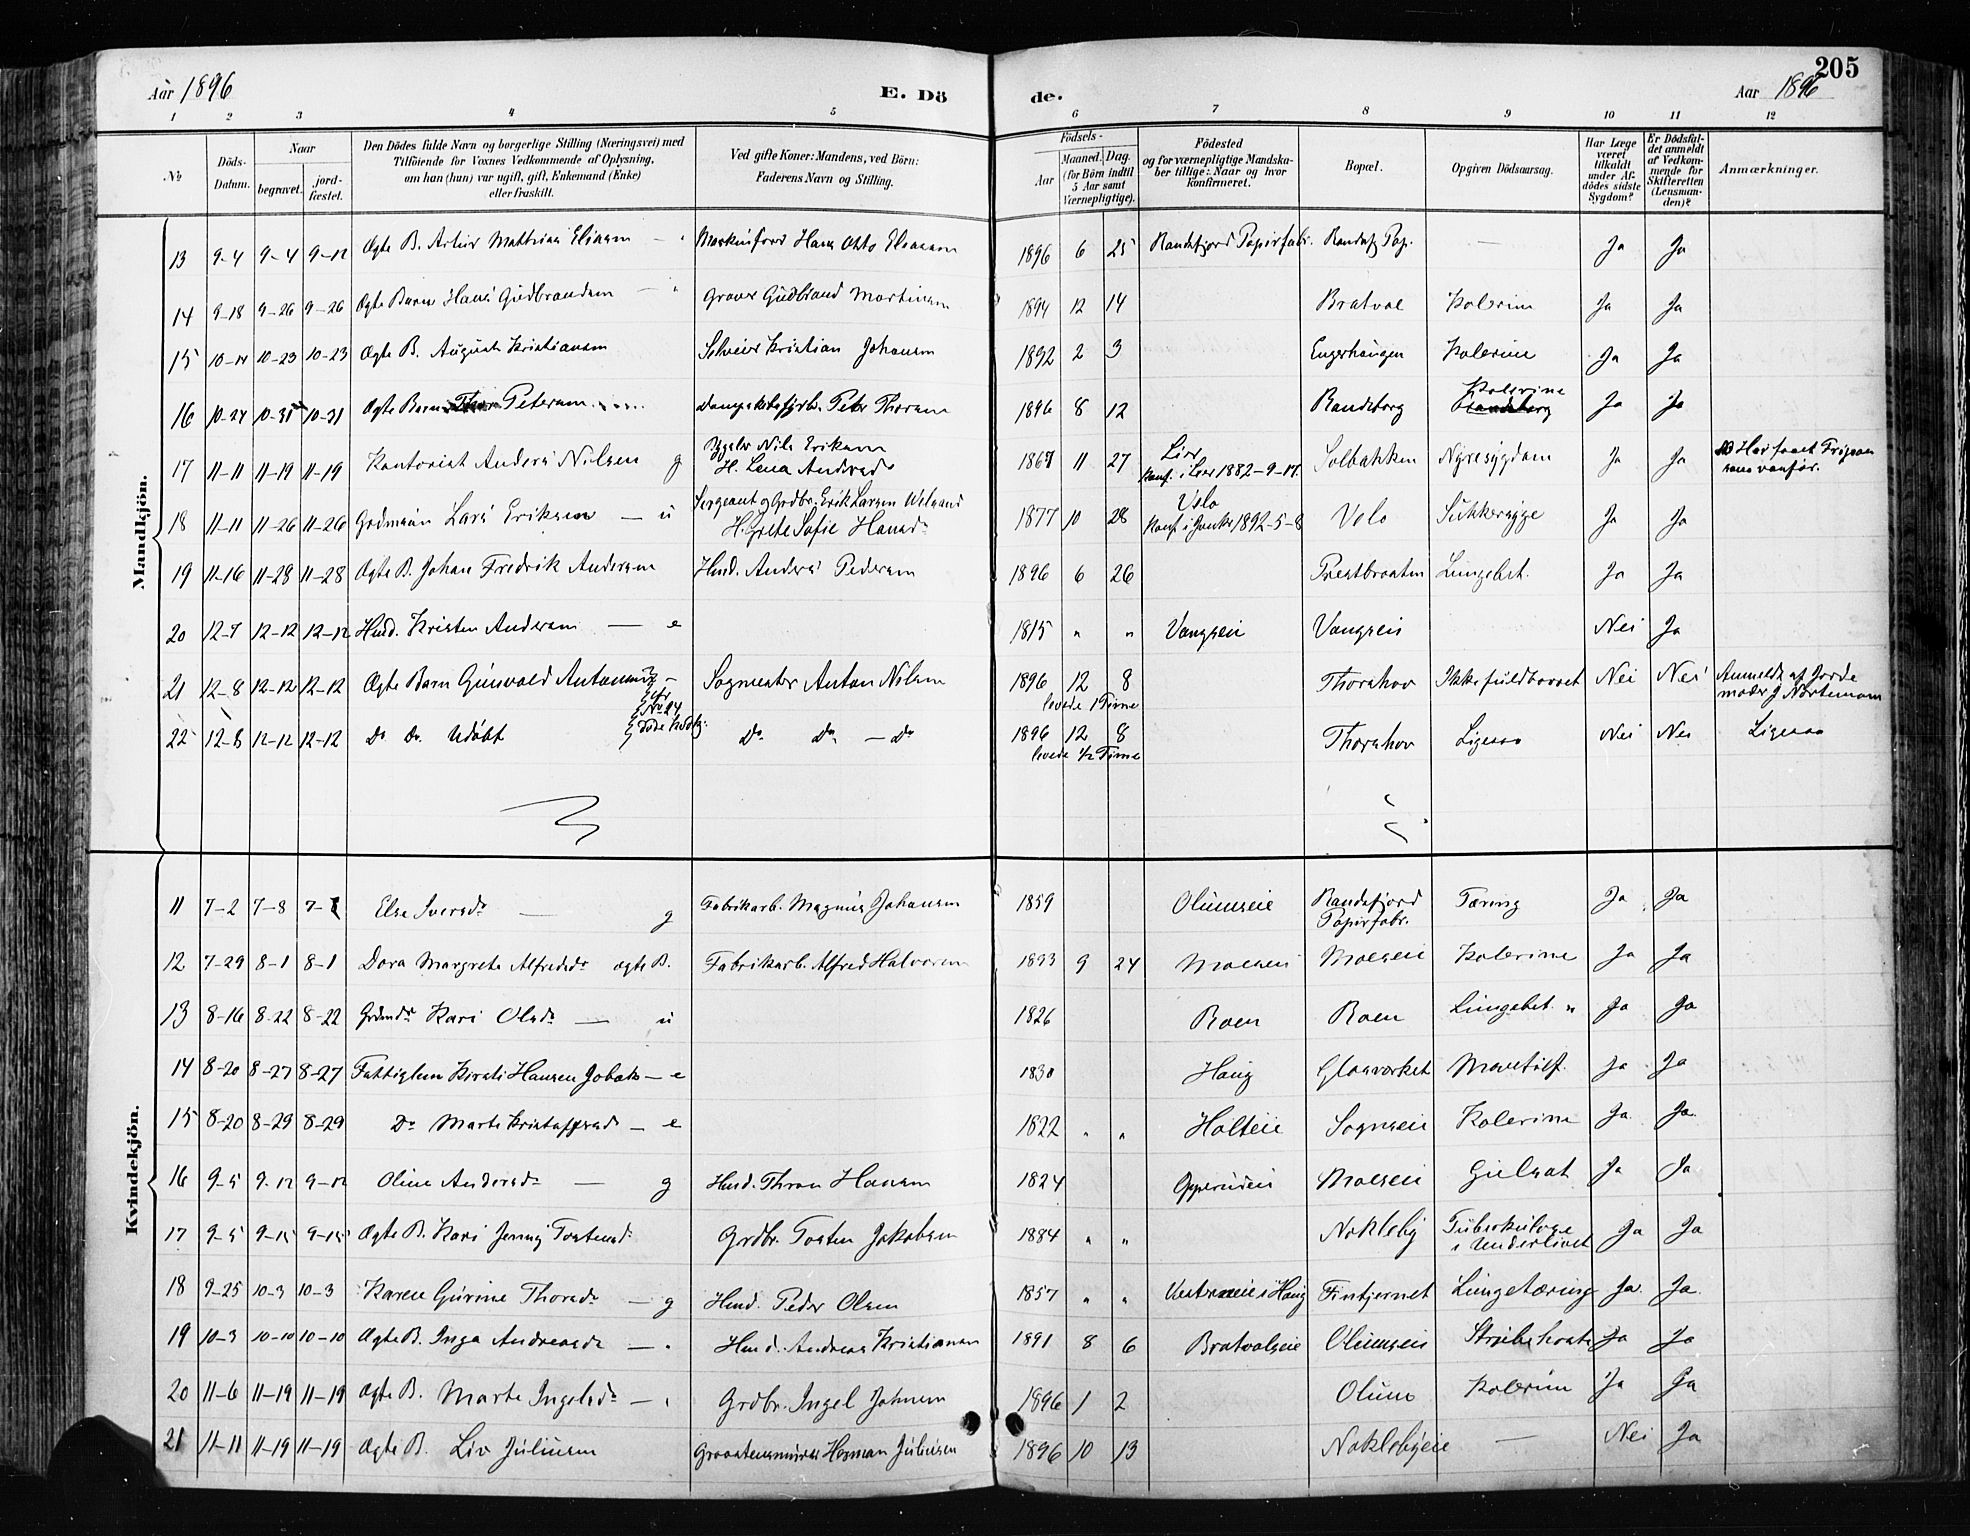 205
Aar 1896
E. Dö
de.
Aar 1896
1 2 3 4 5 6 7 8 9 10 11 12
No
Döds-Datum.
Naar
begravet.
jord-fæstet.
Den Dödes fulde Navn og borgerlige Stilling (Næringsvei) med
Tilföiende for Voxnes Vedkommende af Oplysning,
om han (hun) var ugift, gift, Enkemand (Enke)
eller fraskilt.
Ved gifte Koner: Mandens, ved Börn:
Faderens Navn og Stilling.
Födsels-
Aar
Maaned. Dag.
(for Börn indtil
5 Aar samt
Værnepligtige).
Födested
og for værnepligtige Mandska-
ber tillige: Naar og hvor
konfirmeret.
Bopæl.
Opgiven Dödsaarsag.
Har Læge
været
tilkaldt
under Af-
dödes sidste
Sygdom?
Er Dödsfal-
det anmeldt
af Vedkom-
mende for
Skifteretten
(Lensman-
den)?
Anmærkninger.
Mandkjön.
13 9-4 9-4 9-12 Ægte B. Artur Mathias Eliasen Hans Otto Eliassen 1896 6 25 Randsfjord Papirfabr. Randsfj Pap. — Ja Ja
14 9-18 9-26 9-26 Ægte Barn Hans Gudbrandsen Graver Gudbrand Martinsen 1894 12 14 Bratval Kolerine Ja Ja
15 10-14 10-23 10-23 Ægte B. August Kristiansen Selveier Kristian Johansen 1892 2 3 Engerhaugen Kolerine Ja Ja
16 10-24 10-31 10-31 Ægte Barn Petersen Peter Thorsen 1896 8 12 Randsborg Kolerine Ja Ja
17 11-11 11-19 11-19 Kontorist Anders Nilsen g Nils Eriksen
H. Lena Andersd. 1867 11 27 Lier
Konf. i Lier 1882-9-17 Solbakken Nyresygdom Ja Ja
18 11-11 11-26 11-26 Grdmsøn Lars Eriksen — u Sergeant og Grdbr. Erik Larsen Velsand
H. Grete Sofie Hansd. 1877 10 28 Velo
Konf. i Jevnker 1892-5-8 Velo Sukkersyge Ja Ja
19 11-16 11-28 11-28 Ægte B. Johan Fredrik Andersen Husd. Anders Pedersen 1896 6 26 Prestbraaten Lungebet. Ja Ja
20 12-7 12-12 12-12 Husd. Kristen Andersen — e 1815 " " Vangseie Vangseie Nei Ja
21 12-8 12-12 12-12 Ægte Barn Gunvald Antonsen Sagmester Anton Nilsen 1896 12 8
levede 1 Time Thorshov Ikke fuldbaaret Nei Nei Anmeldt af Jorde
moder J Mortensen
22 12-8 12-12 12-12 Do. Do. Udøbt Do. Do. — Do 1896 12 8
levede 1/2 Time Thorshov Ligesaa Nei Nei Ligesaa
Kvindekjön.
11 7-2 7-8 7-8 Else Iversdr. — g Fabrikarb. Magnus Johansen 1859 Olumseie Randsfjord
Papirfabr. Tæring Ja Ja
12 7-29 8-1 8-1 Dora Margrete Alfredsdr ægte B. Fabrikarb. Alfred Halvorsen 1893 9 24 Moeseie Moeseie Kolerine Ja Ja
13 8-16 8-22 8-22 Kari Olsdr. — u 1826 Roen Roen Lungebet. Ja Ja
14 8-20 8-27 8-27 Fattiglem Kirsti Hansen — e 1830 Haug Glasværket Ja Ja
15 8-20 8-29 8-29 Do Marte Kristoffersd — e 1822 " " Holteie Sognseie Kolerine Ja Ja
16 9-5 9-12 9-12 Oline Andersdr. — g Husd. Thron Hansen 1824 Opperudeie Moeseie Gulsot Ja Ja
17 9-5 9-15 9-15 Ægte B. Kari Jenny Tostensd. Grdbr. Tosten Jakobsen 1884 " " Nokleby Tuberkulose
i Underlivet Ja Ja
18 9-25 10-3 10-3 Karen Gurine Thorsdr. — g Husd. Peder Olsen 1857 " " i Haug Fintjernet Lungetæring Ja Ja
19 10-3 10-10 10-10 Ægte B. Inga Andreasdr. Husd. Andreas Kristiansen 1891 8 6 Bratvalseie Olumseie Strubehoste Ja Ja
20 11-6 11-19 11-19 Ægte B. Marte Ingelsdr. Grdbr. Ingel Johnsen 1896 1 2 Olum Kolerine Ja Ja
21 11-11 11-19 11-19 Ægte B. Liv Juliusen Herman Juliusen 1896 10 13 Noklebyeie — Nei Ja